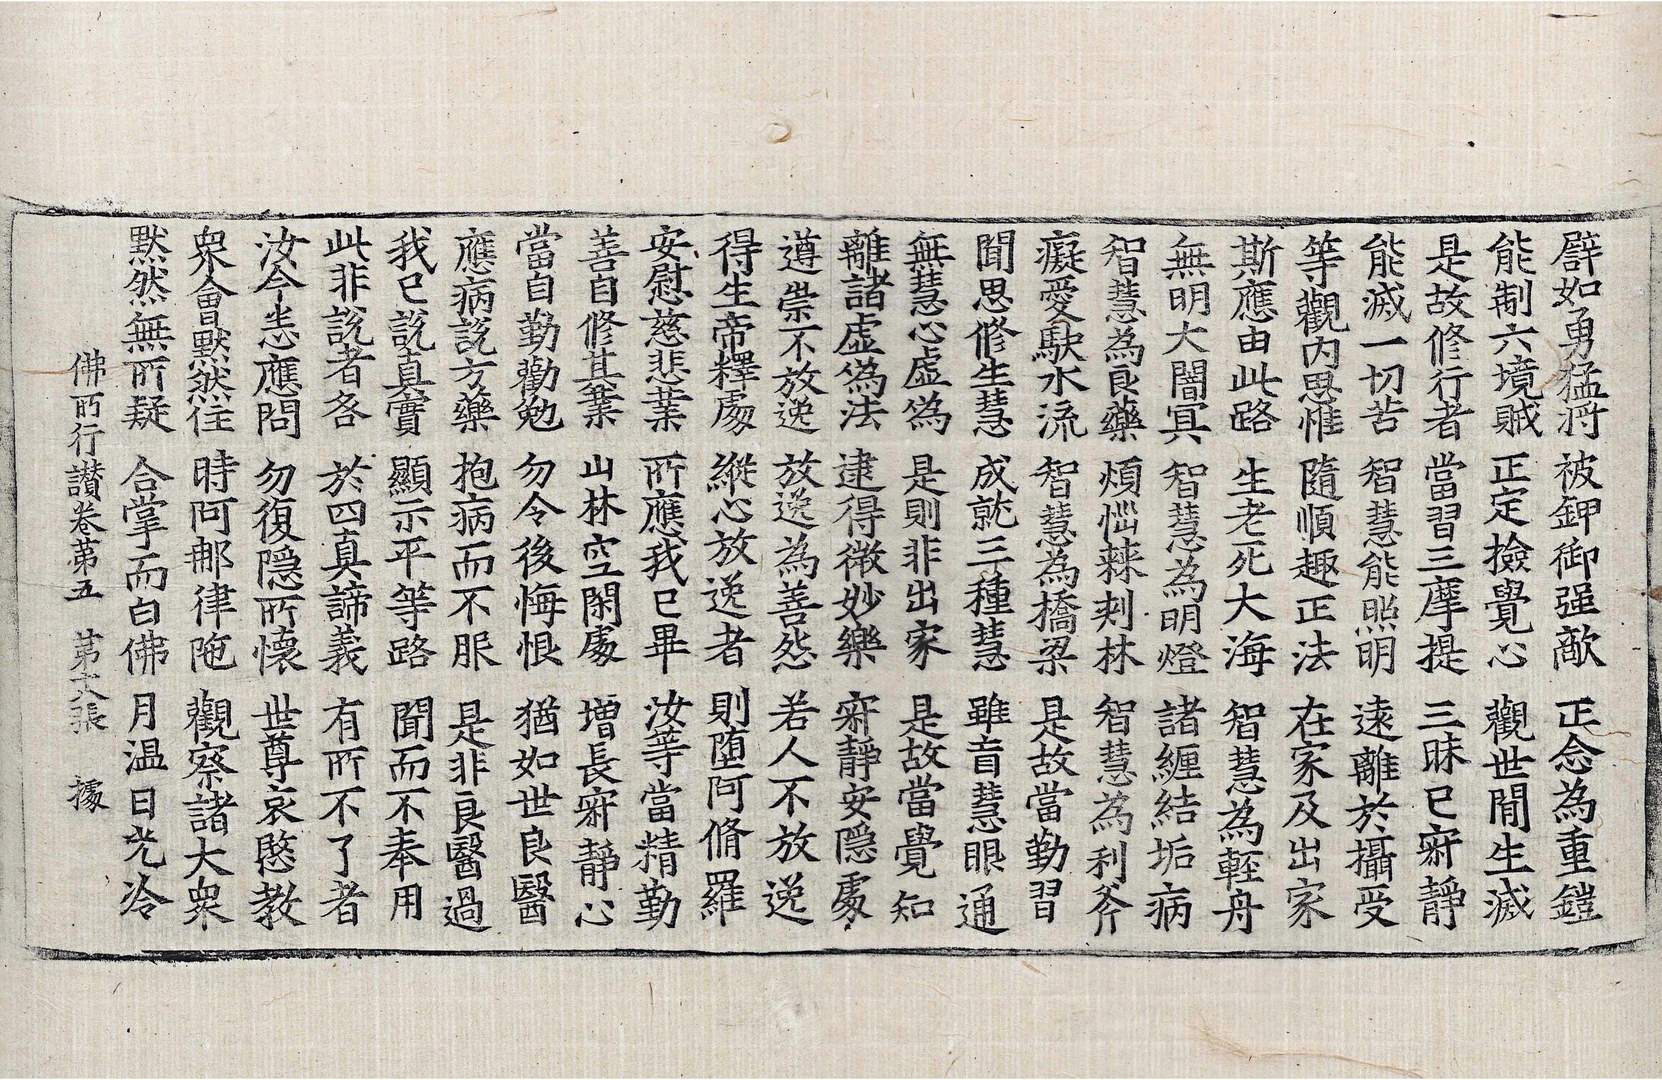 譬如勇猛將 被鉀御强敵 正念為重鎧
能制六境賊 正定撿覺心 觀世間生滅
是故修行者 當習三摩提 三昧已寂靜
能滅一切苦 智慧能照明 遠離於攝受
等觀內思惟 隨順趣正法 在家及出家
斯應由此路 生老死大海 智慧為輕舟
無明大闇冥 智慧為明燈 諸纏結垢病
智慧為良藥 煩惱棘刺林 智慧為利斧
癡愛駃水流 智慧為橋梁 是故當勤習
聞思修生慧 成就三種慧 雖盲慧眼通
無慧心虛為 是則非出家 是故當覺知
離諸虛為法 逮得微妙樂 寂靜安隱處
遵崇不放逸 放逸為善怨 若人不放逸
得生帝釋處 縱心放逸者 則墮阿脩羅
安慰慈悲業 所應我已畢 汝等當精勤
善自修其業 山林空閑處 增長寂靜心
當自勤勸勉 勿令後悔恨 猶如世良醫
應病說方藥 抱病而不服 是非良醫過
我已說真實 顯示平等路 聞而不奉用
此非說者咎 於四真諦義 有所不了者
汝今悉應問 勿復隱所懷 世尊哀愍教
衆會默然住 時阿那律陁 觀察諸大衆
默然無所疑 合掌而白佛 月溫日光冷
佛所行讃卷第五 第六張 據